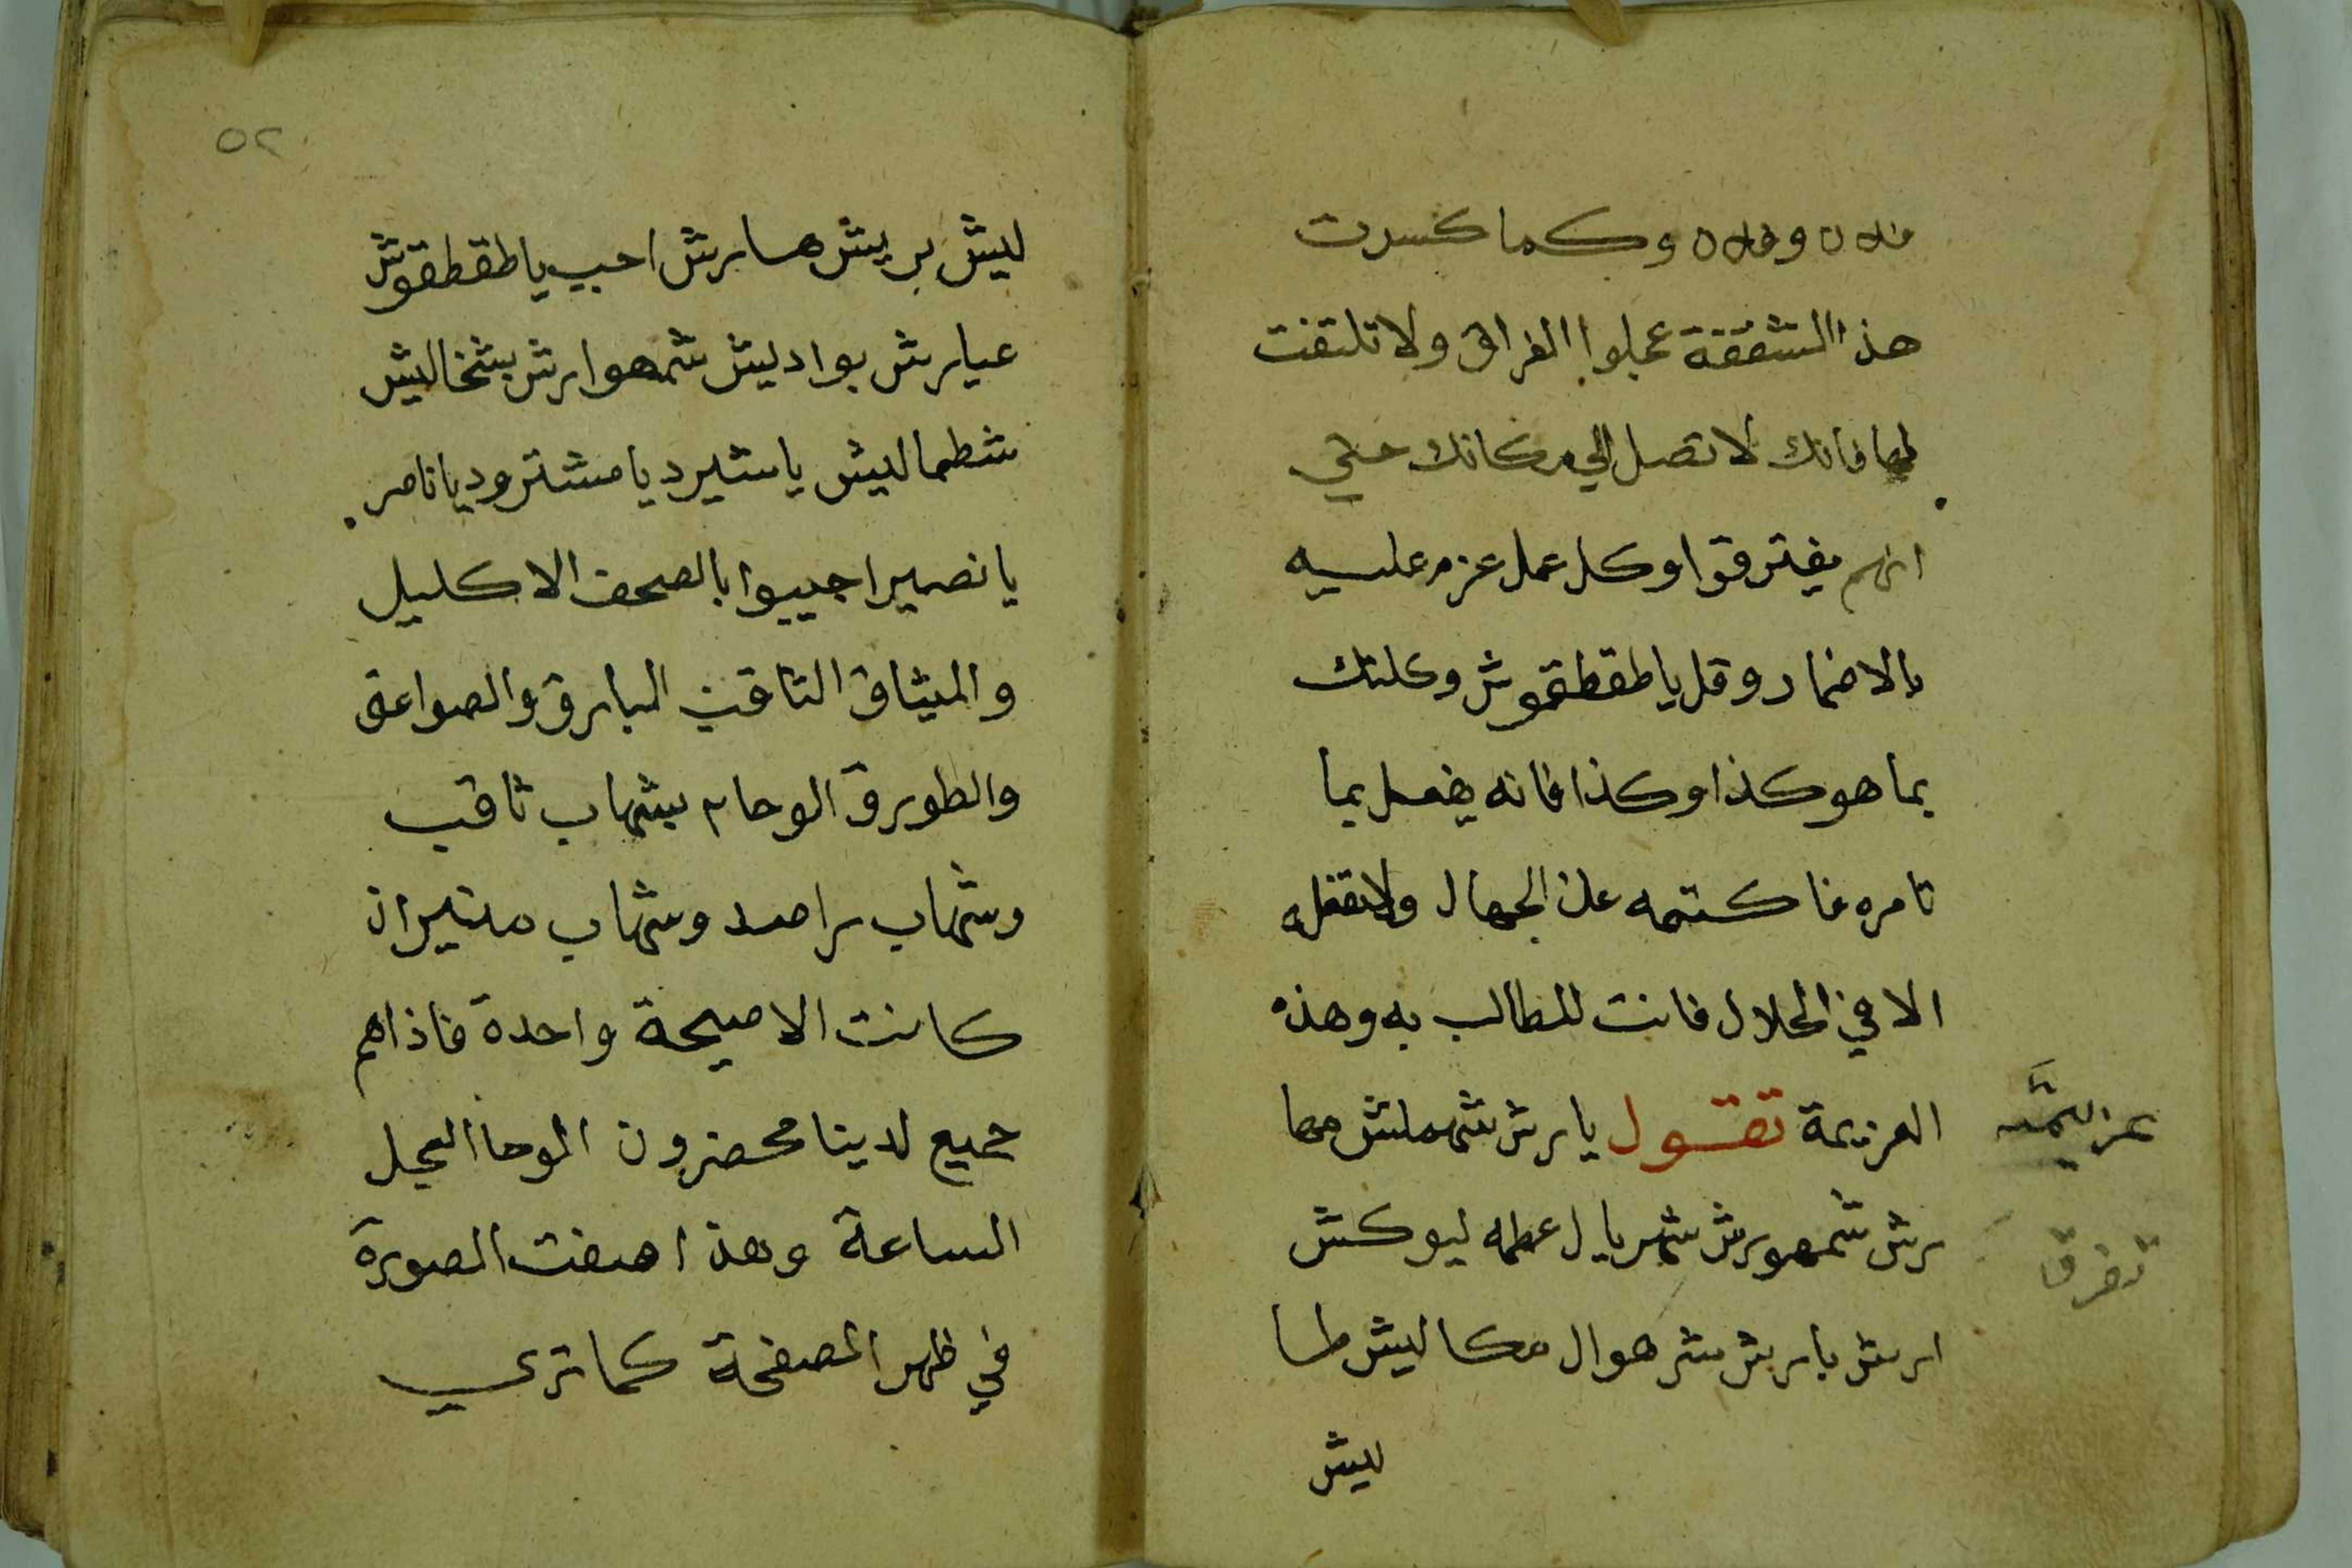 فلان وفلان وكما كسرت
هذا الشقفة عجلوا الفراق ولا تلتفت
لها فانك لا تصل الي مكانك حتي
انهم يفترقوا وكل عمل عزم عليه
بالاضمار وقل يا طقطقموش وكلتك
بما هو كذا وكذا فانه يفعل بما
تامره فاكتمه علي الجهال ولا تفعله
الا في الحلال فانت للطالب به وهذه
العزيمة تقول يا برش شهملش مها
برش شمهورش شمريال عطمه ليوكش
ارش بارش شرهوال مكاليش طا
ليش
عزيمته
تفرق
٥٢
ليش بريش هارش احب يا طقطقوش
عيارش بواد ليش شمهوارش بشخاليش
شطماليش يا شيرد يا مشترود يا ناصر
يا نصير اجيبوا بالصحف الاكليل
والميثاق الثاقب البارق والصواعق
والطورق الوحام بشهاب ثاقب
وشهاب راصد وشهاب منير ان
كانت الا صيحة واحدة فاذا هم
جميع لدينا محضرون الوحا العجل
الساعة وهذا صفت الصورة
في ظهر الصفحة كما تري